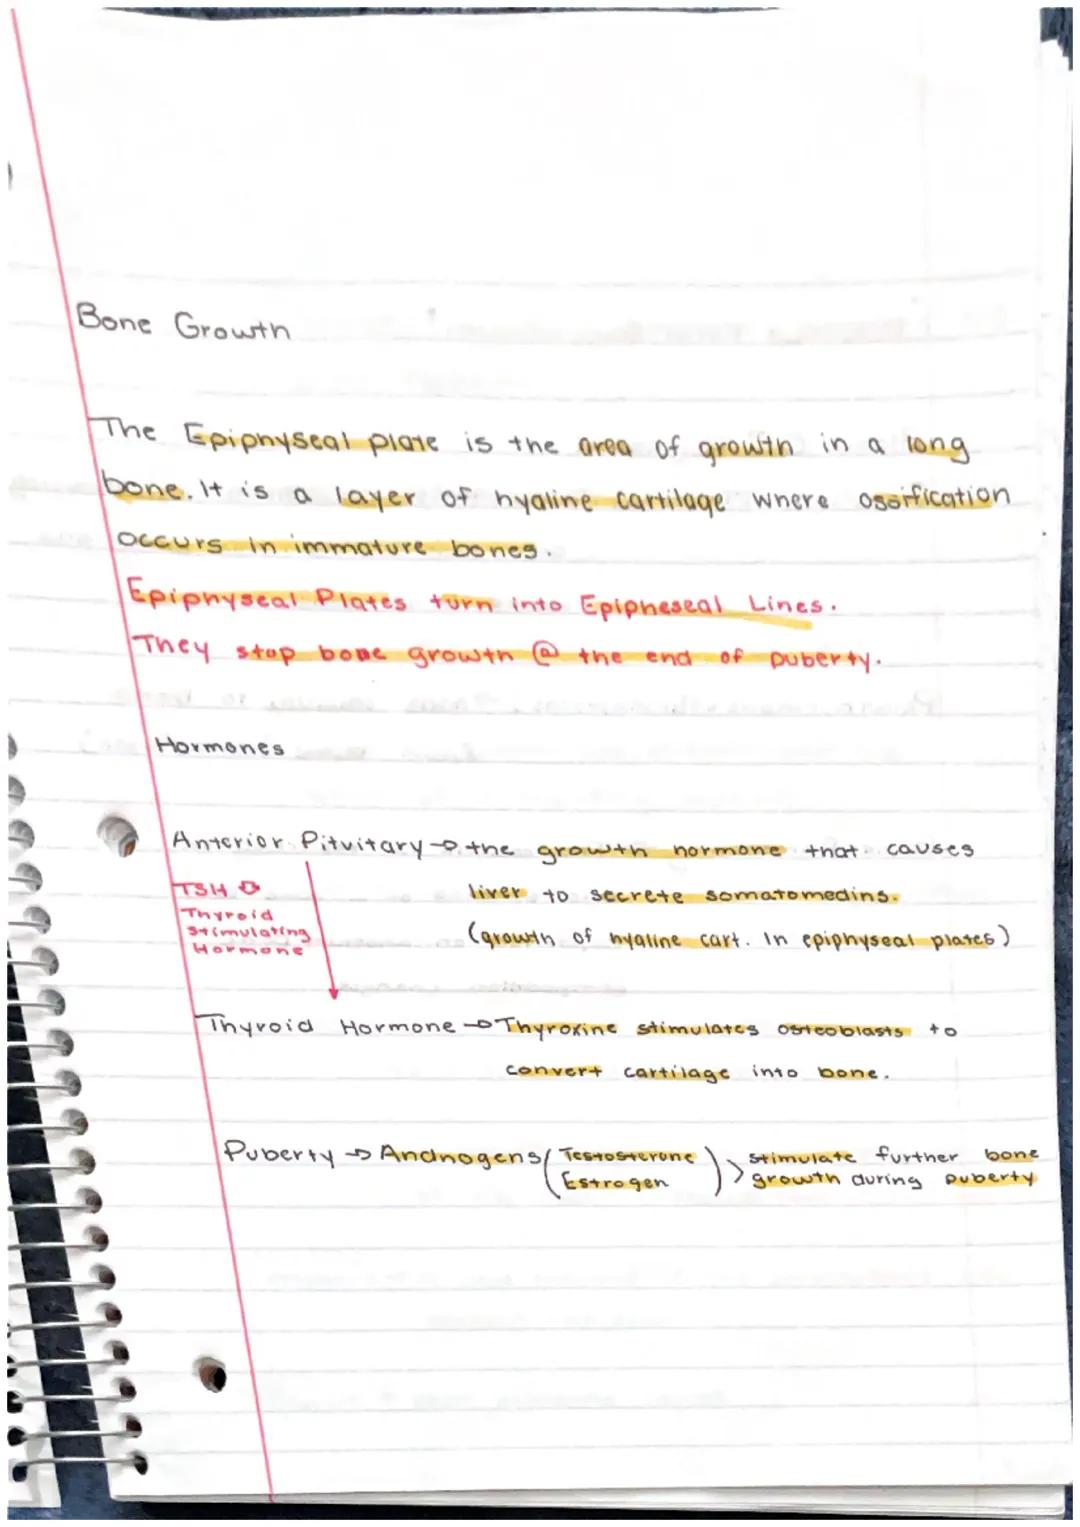 Bone Growth
The Epiphyseal plate is the area of growth in a long
bone. It is a layer of hyaline cartilage where ossification
occurs in immature bones.
Epiphyseal Plates turn into Epipheseal Lines.
They stop bone growth @ the end of puberty.
Hormones
Anterior Pituitary → the growth hormone that causes
liver to secrete somatomedins.
(growth of hyaline cart. In epiphyseal plates)
TSH →
Thyroid
Stimulating
Hormone
Thyroid Hormone → Thyroxine stimulates osteoblasts to
convert cartilage into bone.
Puberty → Andnogens (Testosterone Estrogen) > stimulate further bone
growth during puberty